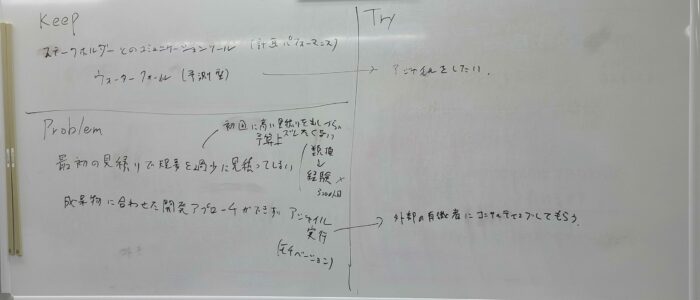 Keep
ステークホルダーとのコミュニケーションツール (計画パフォーマンス)
ウォーターフォール (予測型)
Problem
初回に高い見積りを出しづらい
予算上
最初の見積りで規模を過少に見積ってしまい
類推
経験
成果物に合わせた開発アプローチができず
アジャイル
実行
(モチベーション)
Try
アジャイルをしたい.
外部の有識者にコンサルティングしてもらう